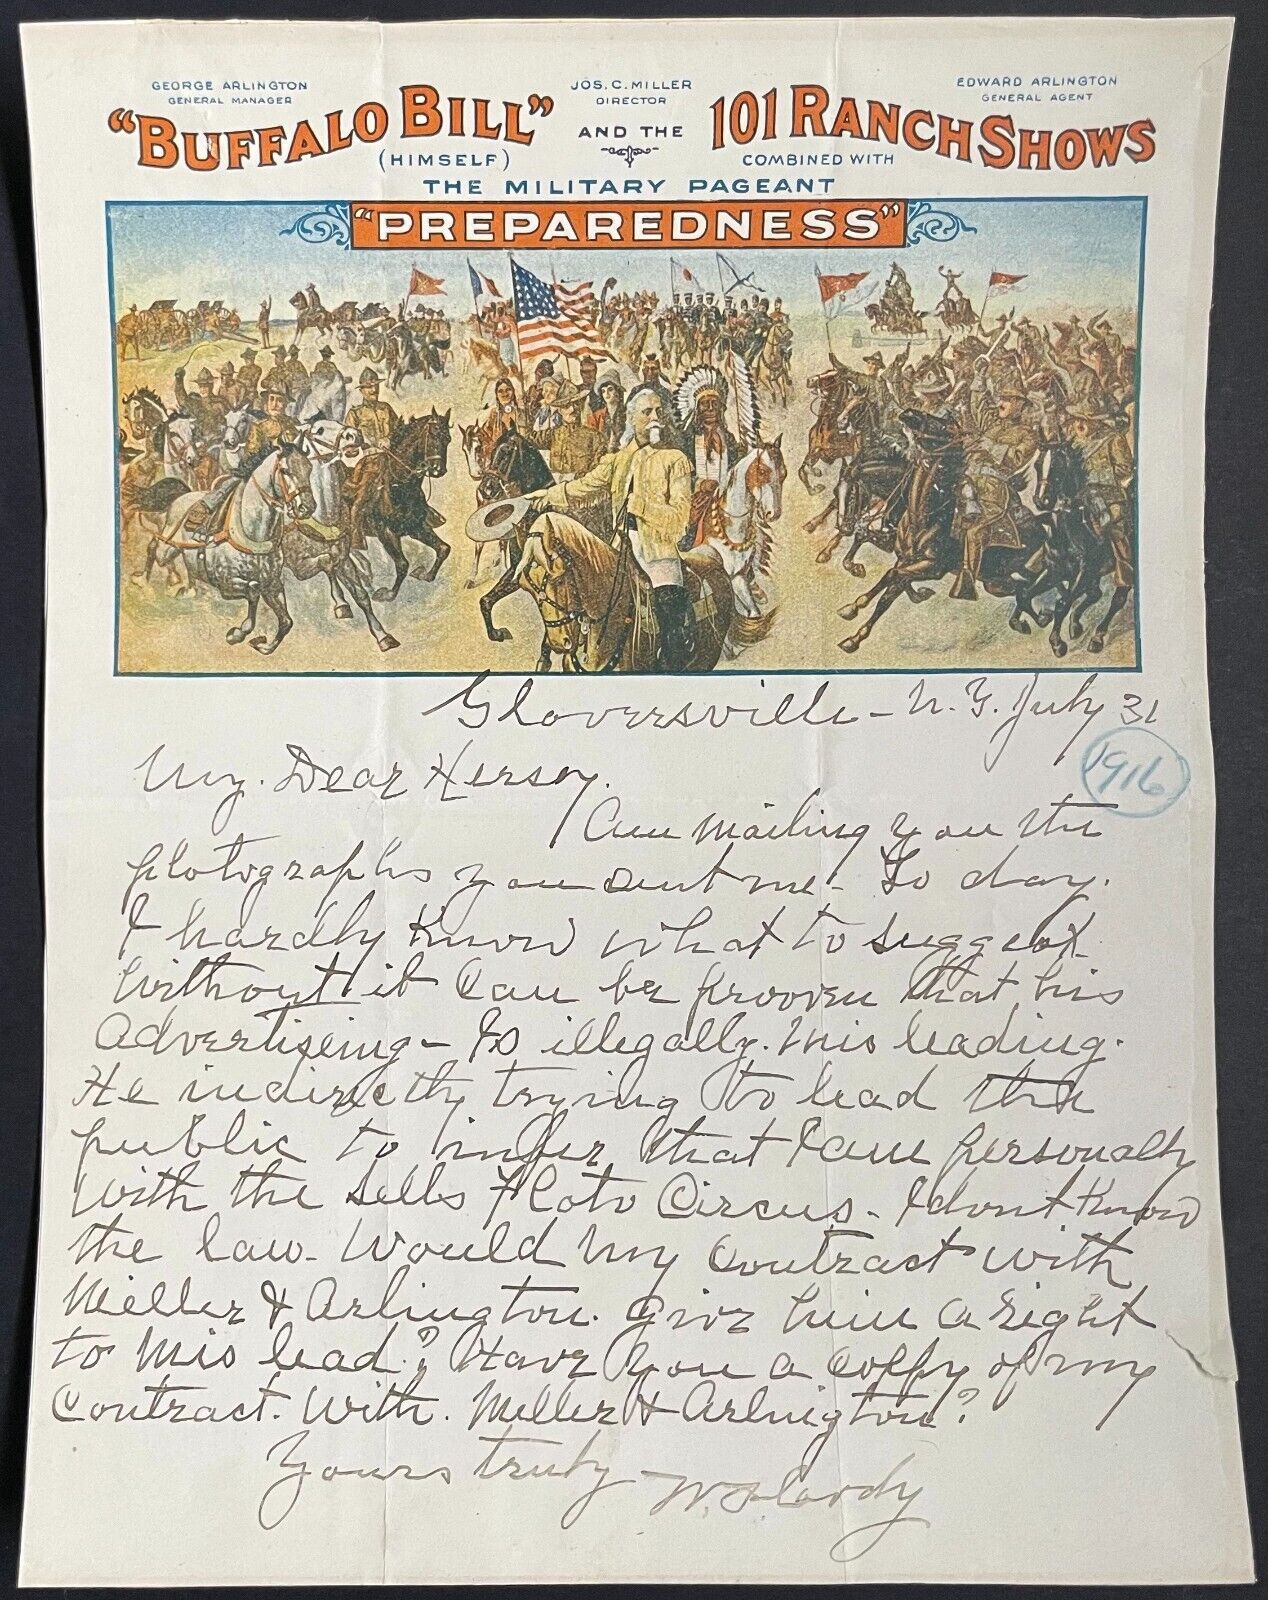 GEORGE ARLINGTON
GENERAL MANAGER
JOS. C. MILLER
DIRECTOR
EDWARD ARLINGTON
GENERAL AGENT
"BUFFALO BILL" AND THE 101 RANCH SHOWS
(HIMSELF) COMBINED WITH
THE MILITARY PAGEANT
"PREPAREDNESS"
Gloversville - N.Y. July 31
1916
My. Dear Hersey.
Am mailing you the
photographs you sent me - To day.
I hardly Know what to suggest
Without it Can be prooven that his
advertiseing - Is illegally. Mis leading.
He indirectly trying to lead the
public to infer that I am personally
with the Sells Floto Circus - I dont Know
the law - Would My Contract with
Miller & Arlington. Give him a right
to Mis lead? Have you a Coppy of my
Contract. With. Miller & Arlington?
Yours truly W. F. Cody